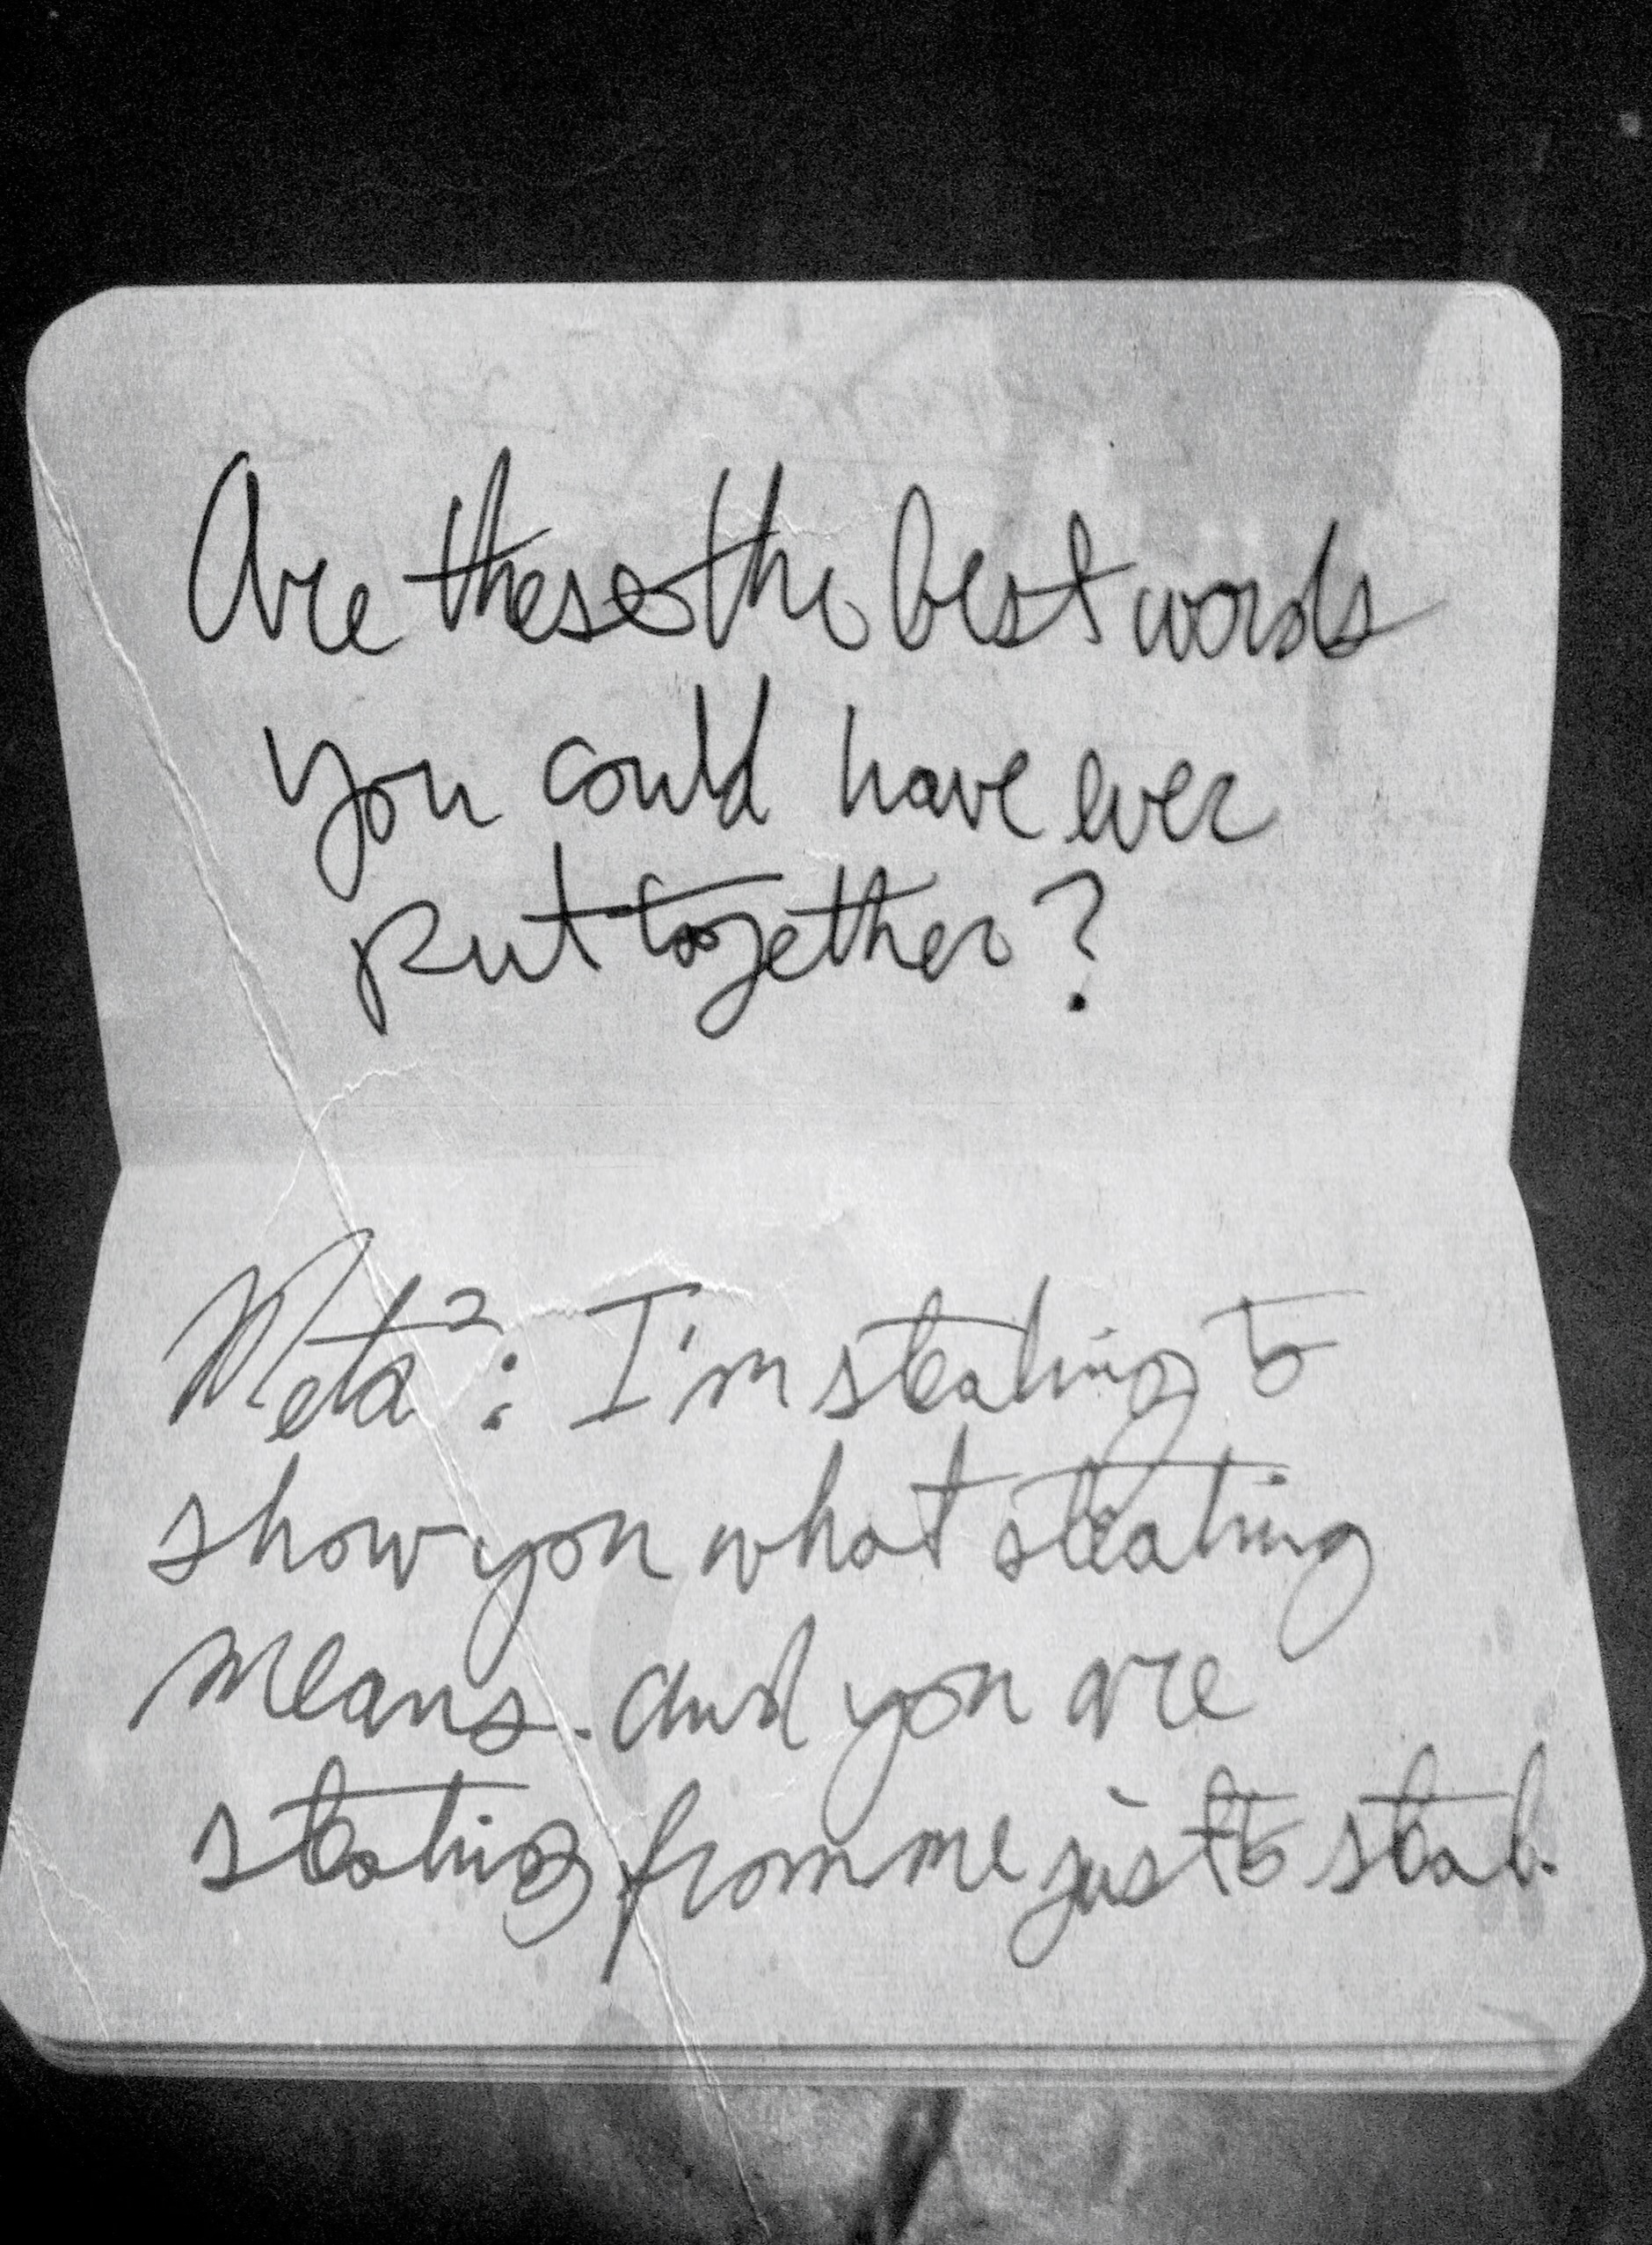 Are these the best words
you could have ever
put together?
Meta²: I'm stealing to
show you what stealing
means. and you are
stealing from me just to steal.